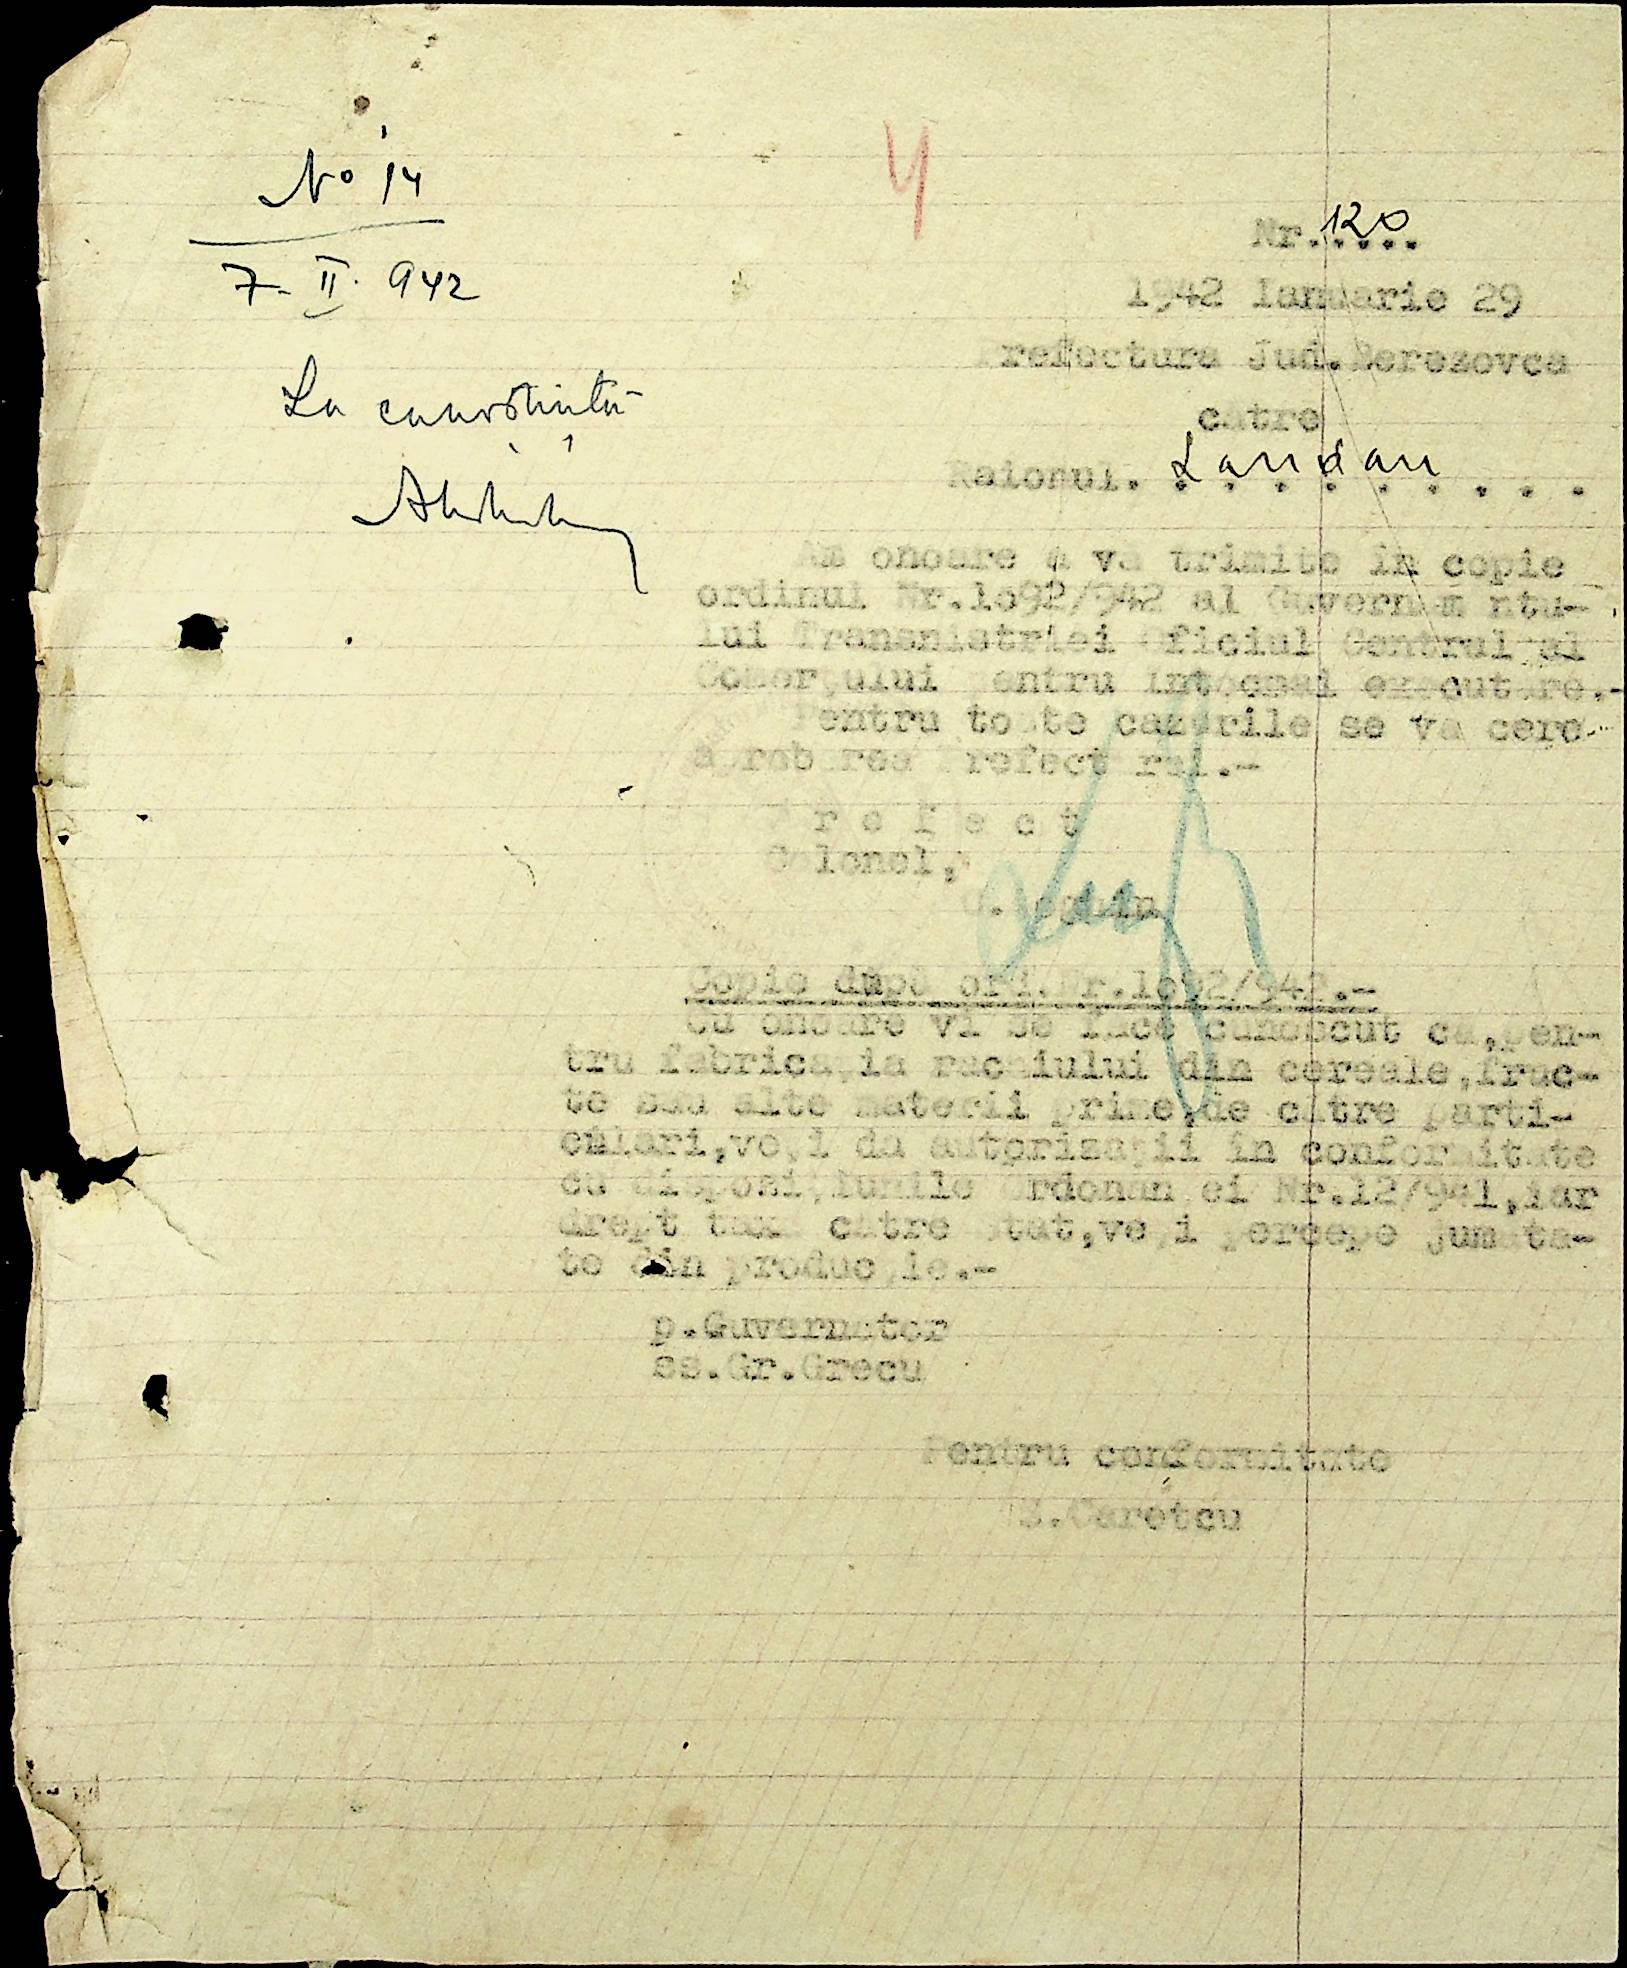 No 14
7. II. 942
La cunoștință
4
Nr. 120
1942 Ianuarie 29
Prefectura Jud. Berezovca
către
Raionul. Landau
Am onoare a vă trimite în copie
ordinul Nr.1o92/942 al Guvernamântu-
lui Transnistriei Oficiul Central al
Comerțului pentru întocmai executare.-
Pentru toate cazurile se va cere
aprobarea Prefecturei.-
P r e f e c t
Colonel,
Copie după ord. Nr.1o92/942.-
Cu onoare vi se face cunoscut că, pen-
tru fabricația rachiului din cereale, fruc-
te sau alte materii prime, de către parti-
culari, veți da autorizații în conformitate
cu dispozițiunile Ordonanței Nr.12/941, iar
drept taxă către Stat, veți percepe jumăta-
te din producție.-
p.Guvernator
ss.Gr.Grecu
Pentru conformitate